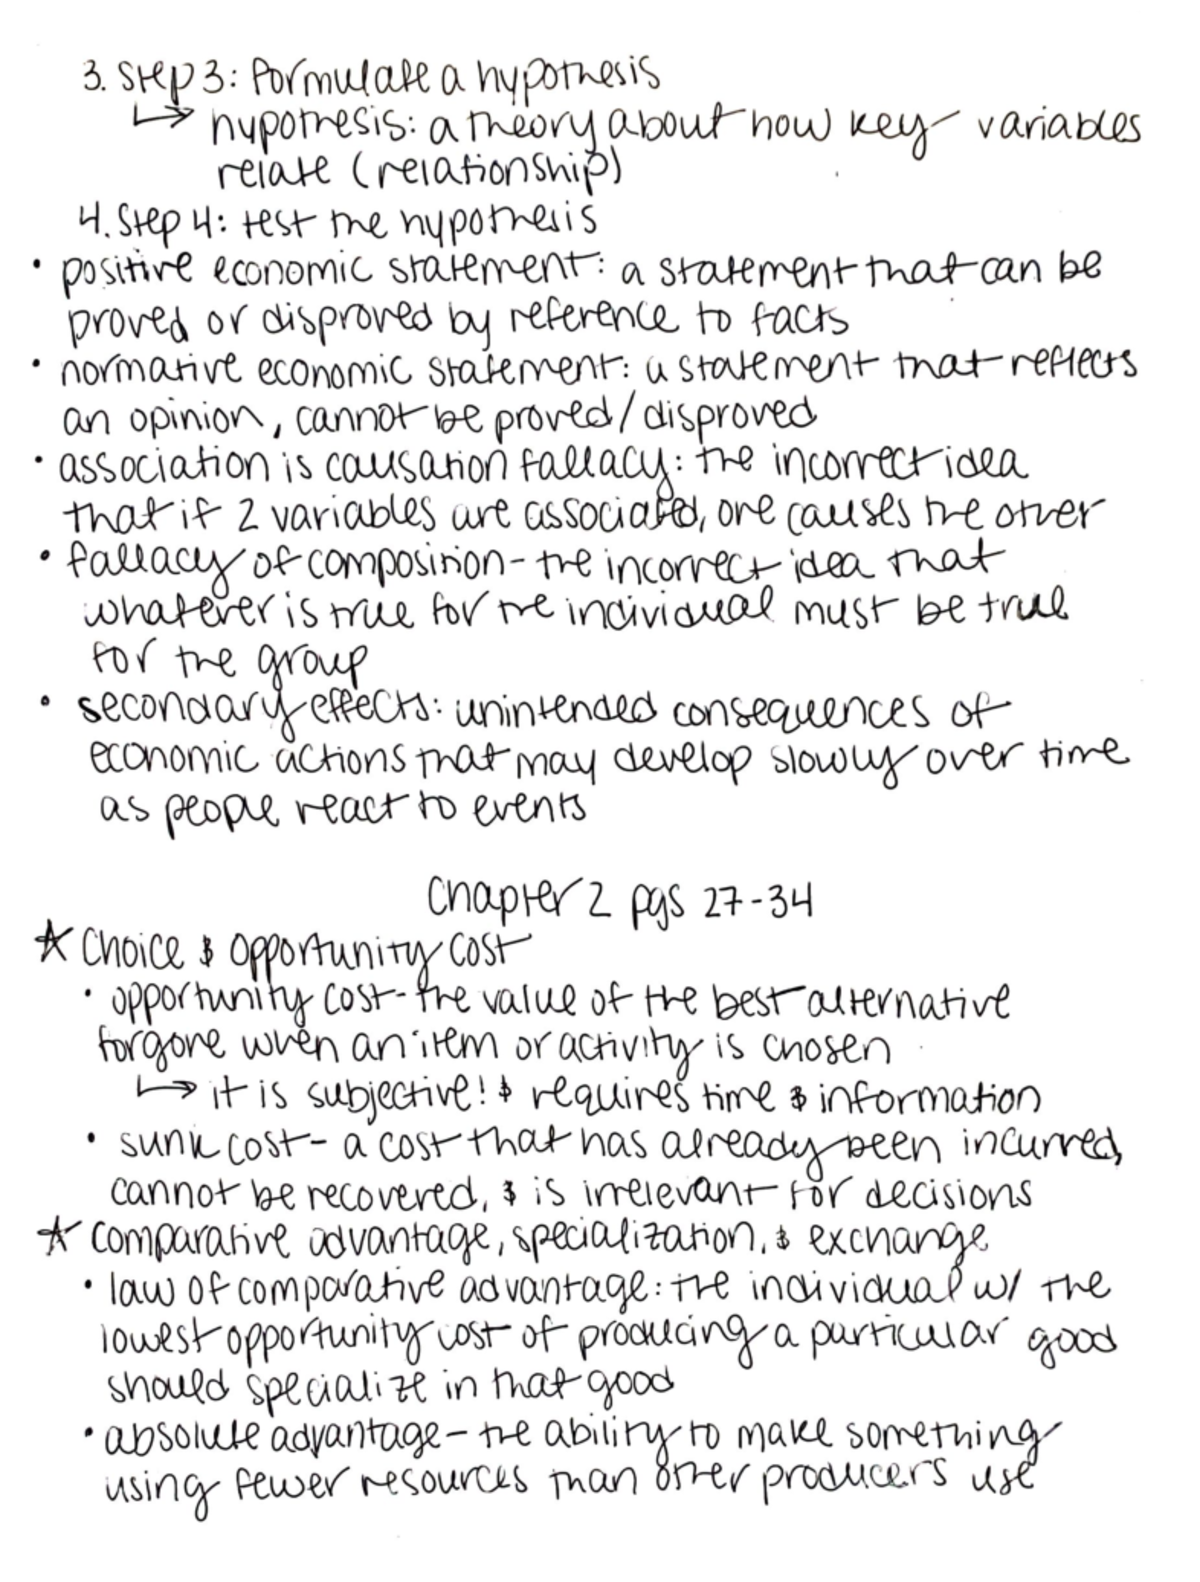 3. Step 3: Formulate a hypothesis
↳ hypothesis: a theory about how key variables
relate (relationship)
4. Step 4: test the hypothesis
• positive economic statement: a statement that can be
proved or disproved by reference to facts
• normative economic statement: a statement that reflects
an opinion, cannot be proved/disproved
• association is causation fallacy: the incorrect idea
that if 2 variables are associated, one causes the other
• fallacy of composition - the incorrect idea that
whatever is true for the individual must be true
for the group
• secondary effects: unintended consequences of
economic actions that may develop slowly over time
as people react to events
Chapter 2 pgs 27-34
☆ Choice & Opportunity Cost
• opportunity cost - the value of the best alternative
forgone when an item or activity is chosen
↳ it is subjective! & requires time & information
• sunk cost - a cost that has already been incurred,
cannot be recovered, & is irrelevant for decisions
☆ comparative advantage, specialization, & exchange
• law of comparative advantage: the individual w/ the
lowest opportunity cost of producing a particular good
should specialize in that good
• absolute advantage - the ability to make something
using fewer resources than other producers use